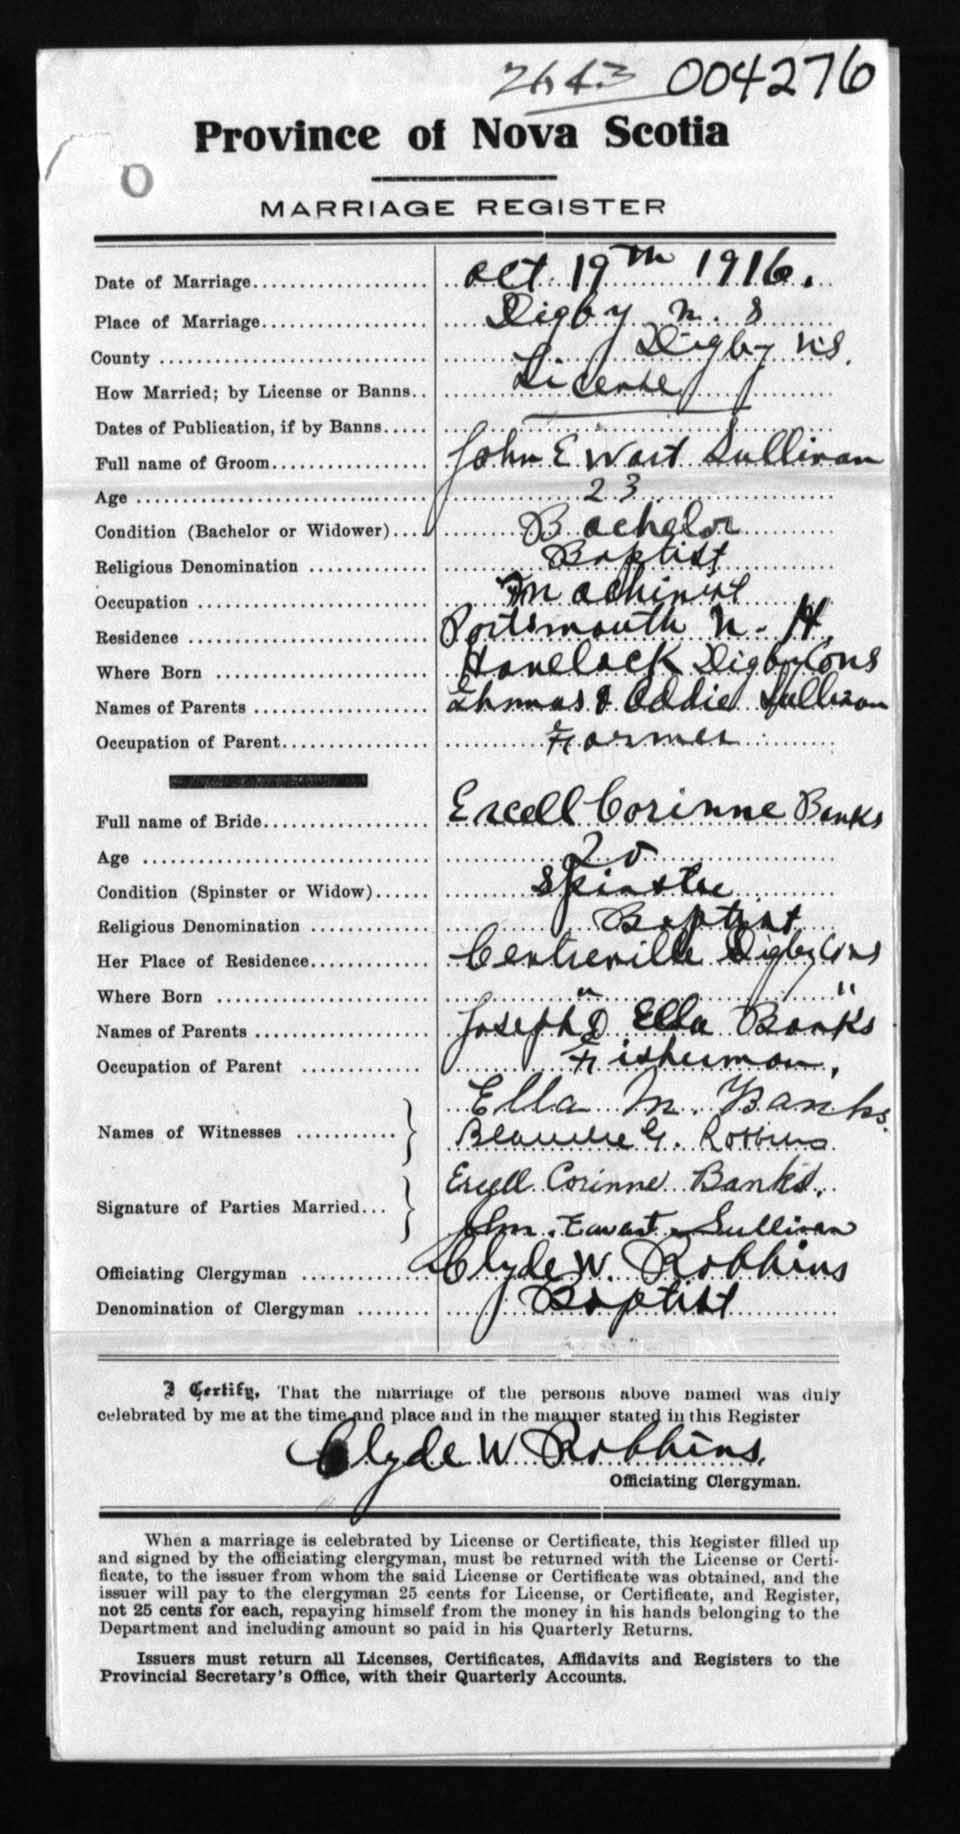 2643 004276
Province of Nova Scotia
MARRIAGE REGISTER
Date of Marriage.................... Oct 19th 1916.
Place of Marriage................... Digby N. S
County .............................. Digby NS.
How Married; by License or Banns.. License
Dates of Publication, if by Banns.....
Full name of Groom.................. John Ewart Sullivan
Age .................................. 23
Condition (Bachelor or Widower).... Bachelor
Religious Denomination ............. Baptist
Occupation .......................... Machinist
Residence ........................... Portsmouth N. H.
Where Born ........................ Havelock Digby Co NS
Names of Parents .................... Thomas & Addie Sullivan
Occupation of Parent................. Farmer
Full name of Bride................... Ercell Corinne Banks
Age ................................. 20
Condition (Spinster or Widow)...... Spinster
Religious Denomination ............. Baptist
Her Place of Residence............. Centreville Digby Co NS
Where Born ........................ " "
Names of Parents .................... Joseph & Ella Banks
Occupation of Parent ............. Fisherman,
Names of Witnesses ........... } Ella M. Banks.
Blanche G. Robbins
Signature of Parties Married... } Ercell Corinne Banks.
John Ewart Sullivan
Officiating Clergyman ............. Clyde W. Robbins
Denomination of Clergyman ........ Baptist
I Certify, That the marriage of the persons above named was duly
celebrated by me at the time and place and in the manner stated in this Register
Clyde W Robbins.
Officiating Clergyman.
When a marriage is celebrated by License or Certificate, this Register filled up
and signed by the officiating clergyman, must be returned with the License or Certi-
ficate, to the issuer from whom the said License or Certificate was obtained, and the
issuer will pay to the clergyman 25 cents for License, or Certificate, and Register,
not 25 cents for each, repaying himself from the money in his hands belonging to the
Department and including amount so paid in his Quarterly Returns.
Issuers must return all Licenses, Certificates, Affidavits and Registers to the
Provincial Secretary's Office, with their Quarterly Accounts.